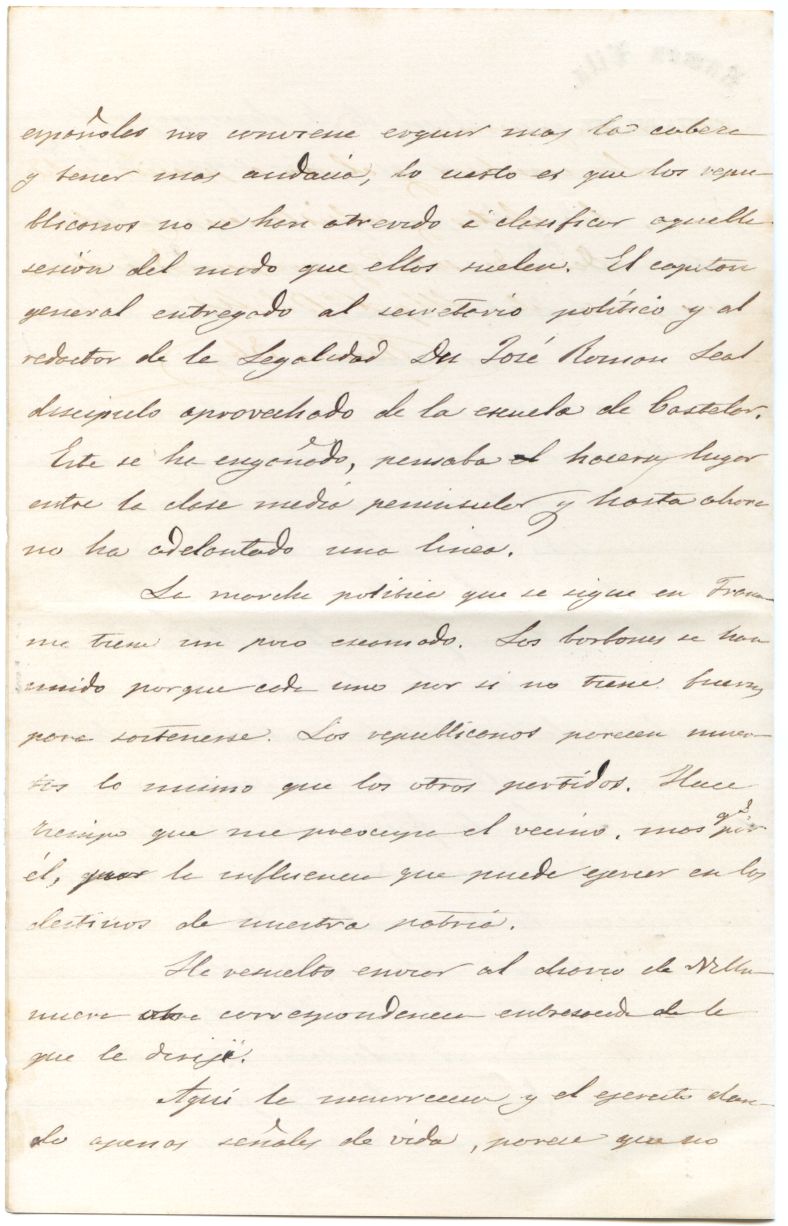 españoles nos conviene erguir mas la cabeza
y tener mas audacia, lo cierto es que los repu-
blicanos no se han atrevido á clasificar aquella
sesión del modo que ellos suelen. El capitan
general entregado al secretario político y al
redactor de la Legalidad Dn José Roman Leal
discipulo aprovechado de la escuela de Castelar.
Este se ha engañado, pensaba el hacerse lugar
entre la clase media peninsular y hasta ahora
no ha adelantado una linea.
La marcha política que se sigue en Fran-
me tiene un poco escamado. Los borbones se han
unido porque cada uno por si no tiene fuerzas
para sostenerse. Los republicanos parecen muer-
tos lo mismo que los otros partidos. Hace
tiempo que me preocupa el vecino, mas qe por
él, por la influencia que puede ejercer en los
destinos de nuestra patria.
He resuelto enviar al diario de Villa-
nueva otra correspondencia entresacada de la
que le dirijí.
Aquí la insurreccion y el ejercito dan-
do apenas señales de vida, parece que no